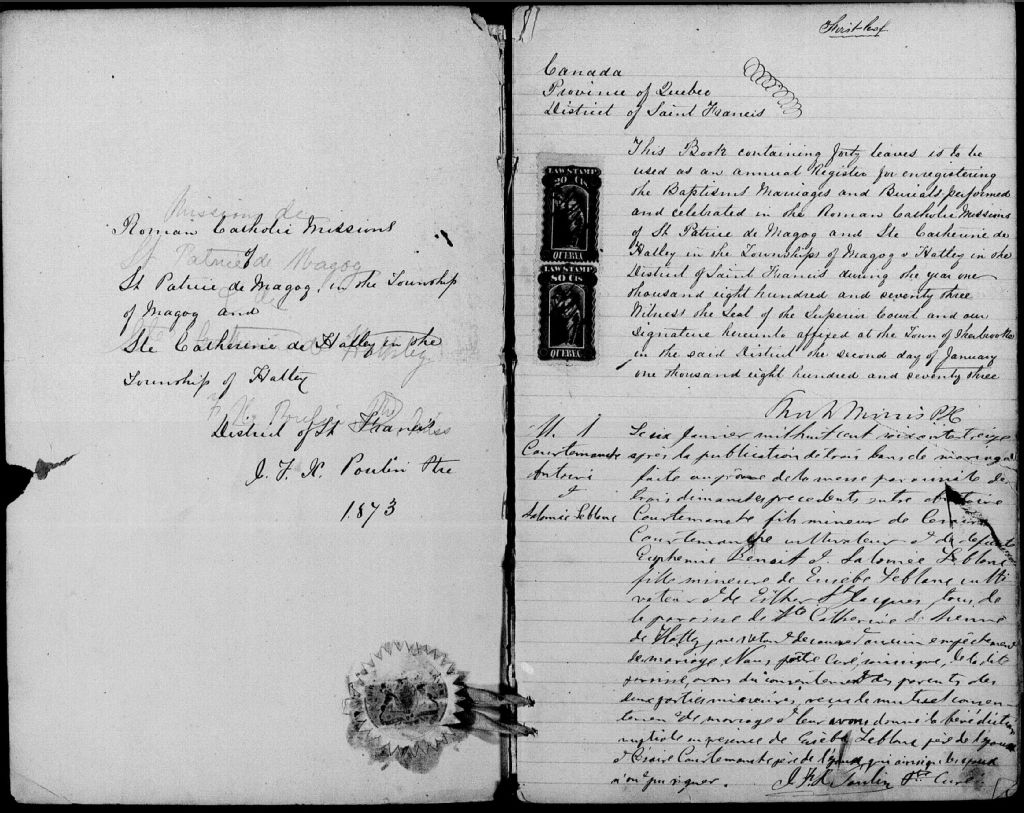 Mission de
Roman Catholic Missions
of
St Patrice de Magog
St Patrice de Magog, in the Township
of Magog and
Ste Catherine de Hatley in the
Township of Hatley
District of St Francis
J. F. X. Poulin Ptre
1873
First leaf
Canada
Province of Quebec
District of Saint Francis
LAW STAMP
20 CTS
QUEBEC
LAW STAMP
80 CTS
QUEBEC
This Book containing forty leaves is to be
used as an annual Register for enregistering
the Baptisms Marriages and Burials performed
and celebrated in the Roman Catholic Missions
of St Patrice de Magog and Ste Catherine de
Hatley in the Townships of Magog & Hatley in the
District of Saint Francis during the year one
thousand eight hundred and seventy three
Witness the Seal of the Superior Court and our
Signature hereunto affixed at the Town of Sherbrooke
in the said District the second day of January
one thousand eight hundred and seventy three
Morris
M. 1
Courtemanche
Antoine
&
Salomée Leblanc
Le six Janvier mil huit cent soixante treize
après la publication de trois bans de mariage
faite au prône de la messe paroissiale
trois dimanches précédents entre Antoine
Courtemanche fils mineur de
Courtemanche cultivateur & de défunte
Euphémie Benoit & Salomée Leblanc
fille mineure de Eusèbe Leblanc culti
vateur & de Esther St Jacques, tous de
la paroisse de Ste Catherine
de Hatley, ne s'étant découvert aucun empêchement
de mariage Nous Ptre Curé, soussigné, de la dite
paroisse, avons du consentement des parents des
deux parties mineures, reçu le mutuel consen
tement de mariage & leur avons donné la bénédiction
nuptiale en présence de Eusèbe Leblanc père de l'épouse
& Courtemanche père de l'époux, qui ainsi que les époux
n'ont pu signer.
J. F. X. Poulin Ptre Curé